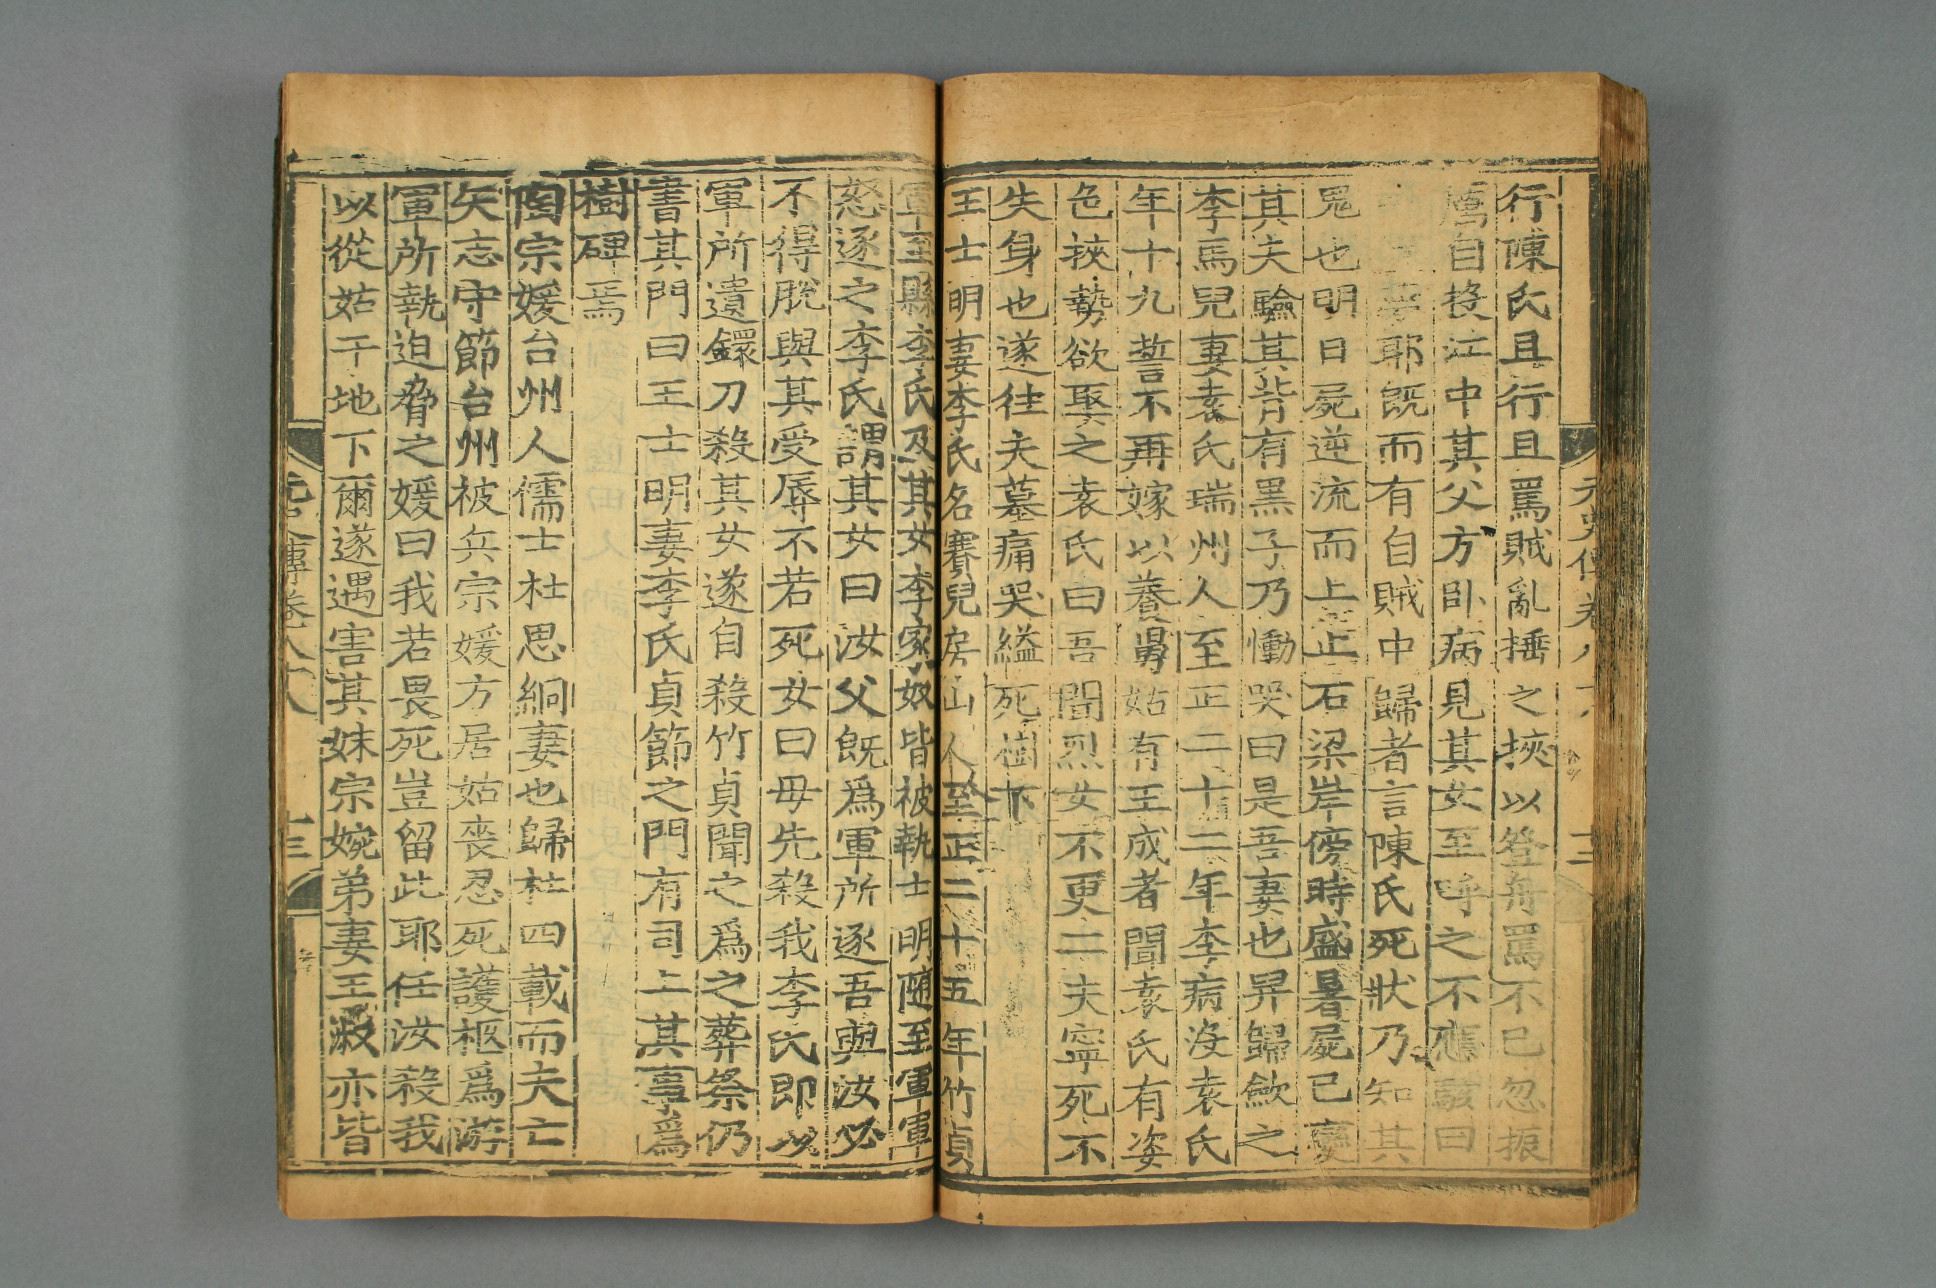 行陳氏且行且罵賊亂捶之挾以登舟罵不已忽振
鷹自投江中其父方卧病見其女至呼之不應駭曰
夢耶既而有自賊中歸者言陳氏死狀乃知其
鬼也明日屍逆流而上止石梁岸傍時盛暑屍已變
其夫驗其背有黑子乃慟哭曰是吾妻也舁歸斂之
李馬兒妻袁氏瑞州人至正二十二年李病沒袁氏
年十九誓不再嫁以養舅姑有王成者聞袁氏有姿
色挾勢欲娶之袁氏曰吾聞烈女不更二夫寧死不
失身也遂往夫墓痛哭縊死樹下
王士明妻李氏名賽兒房山人至正二十五年竹貞
軍至縣李氏及其女李家奴皆被執士明隨至軍軍
怒逐之李氏謂其女曰汝父既爲軍所逐吾與汝必
不得脫與其受辱不若死女曰毋先殺我李氏即以
軍所遺鐶刀殺其女遂自殺竹貞聞之爲之葬祭仍
書其門曰王士明妻李氏貞節之門有司上其事爲
樹碑焉
陶宗媛台州人儒士杜思絅妻也歸杜四載而夫亡
矢志守節台州被兵宗媛方居姑喪忍死護柩爲游
軍所執迫脅之媛曰我若畏死豈留此耶任汝殺我
以從姑于地下爾遂遇害其妹宗婉弟妻王淑亦皆
元史傳卷八十八
十二
元史傳卷八十八
十三